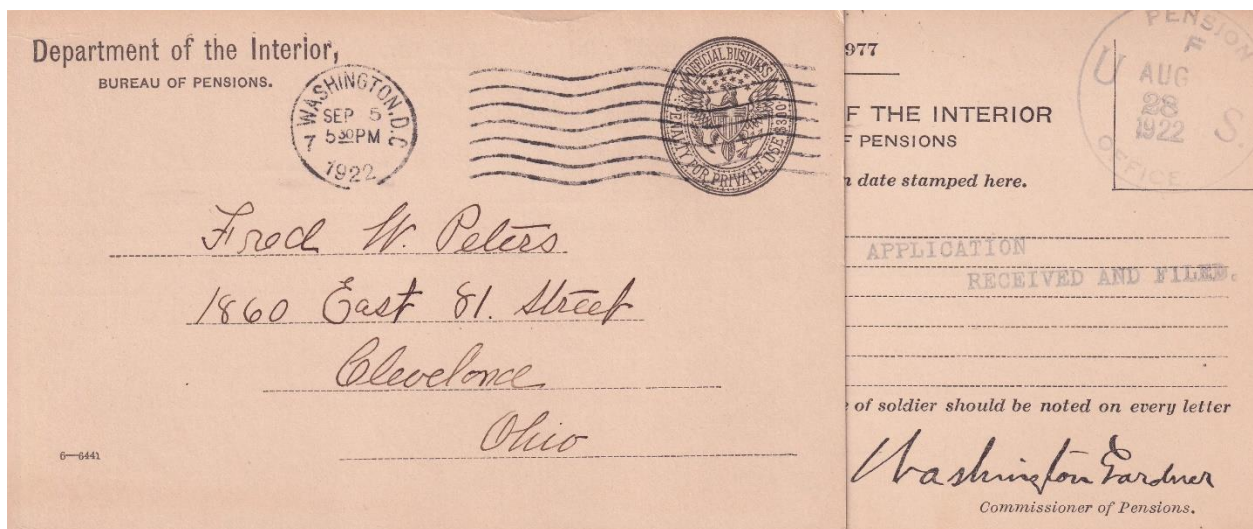 Department of the Interior,
BUREAU OF PENSIONS.
WASHINGTON, D.C.
SEP 5
5 30 PM
7
1922
OFFICIAL BUSINESS
PENALTY FOR PRIVATE USE $300
Fred W. Peters
1860 East 81. Street
Cleveland
Ohio
6—6441
977
PENSION
F
U AUG S.
28
1922
OFFICE
F THE INTERIOR
F PENSIONS
date stamped here.
APPLICATION
RECEIVED AND FILED.
of soldier should be noted on every letter
Washington Gardner
Commissioner of Pensions.